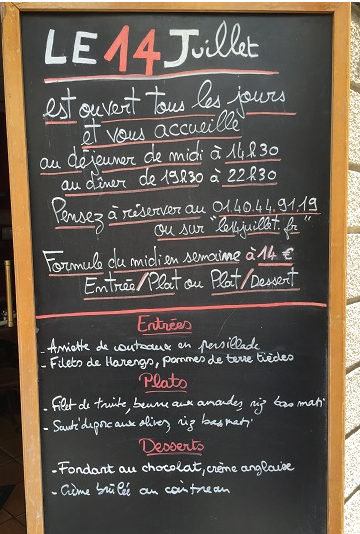 LE 14 Juillet
est ouvert tous les jours
et vous accueille
au déjeuner de midi à 14h30
au dîner de 19h30 à 22h30
Pensez à réserver au 01.40.44.91.19
ou sur "le14juillet.fr"
Formule du midi en semaine à 14 €
Entrée/Plat ou Plat/Dessert
Entrées
- Assiette de couteaux en persillade
- Filets de Harengs, pommes de terre tièdes
Plats
- Filet de truite, beurre aux amandes riz basmati
- Sauté de porc aux olives riz basmati
Desserts
- Fondant au chocolat, crème anglaise
- Crème brûlée au cointreau